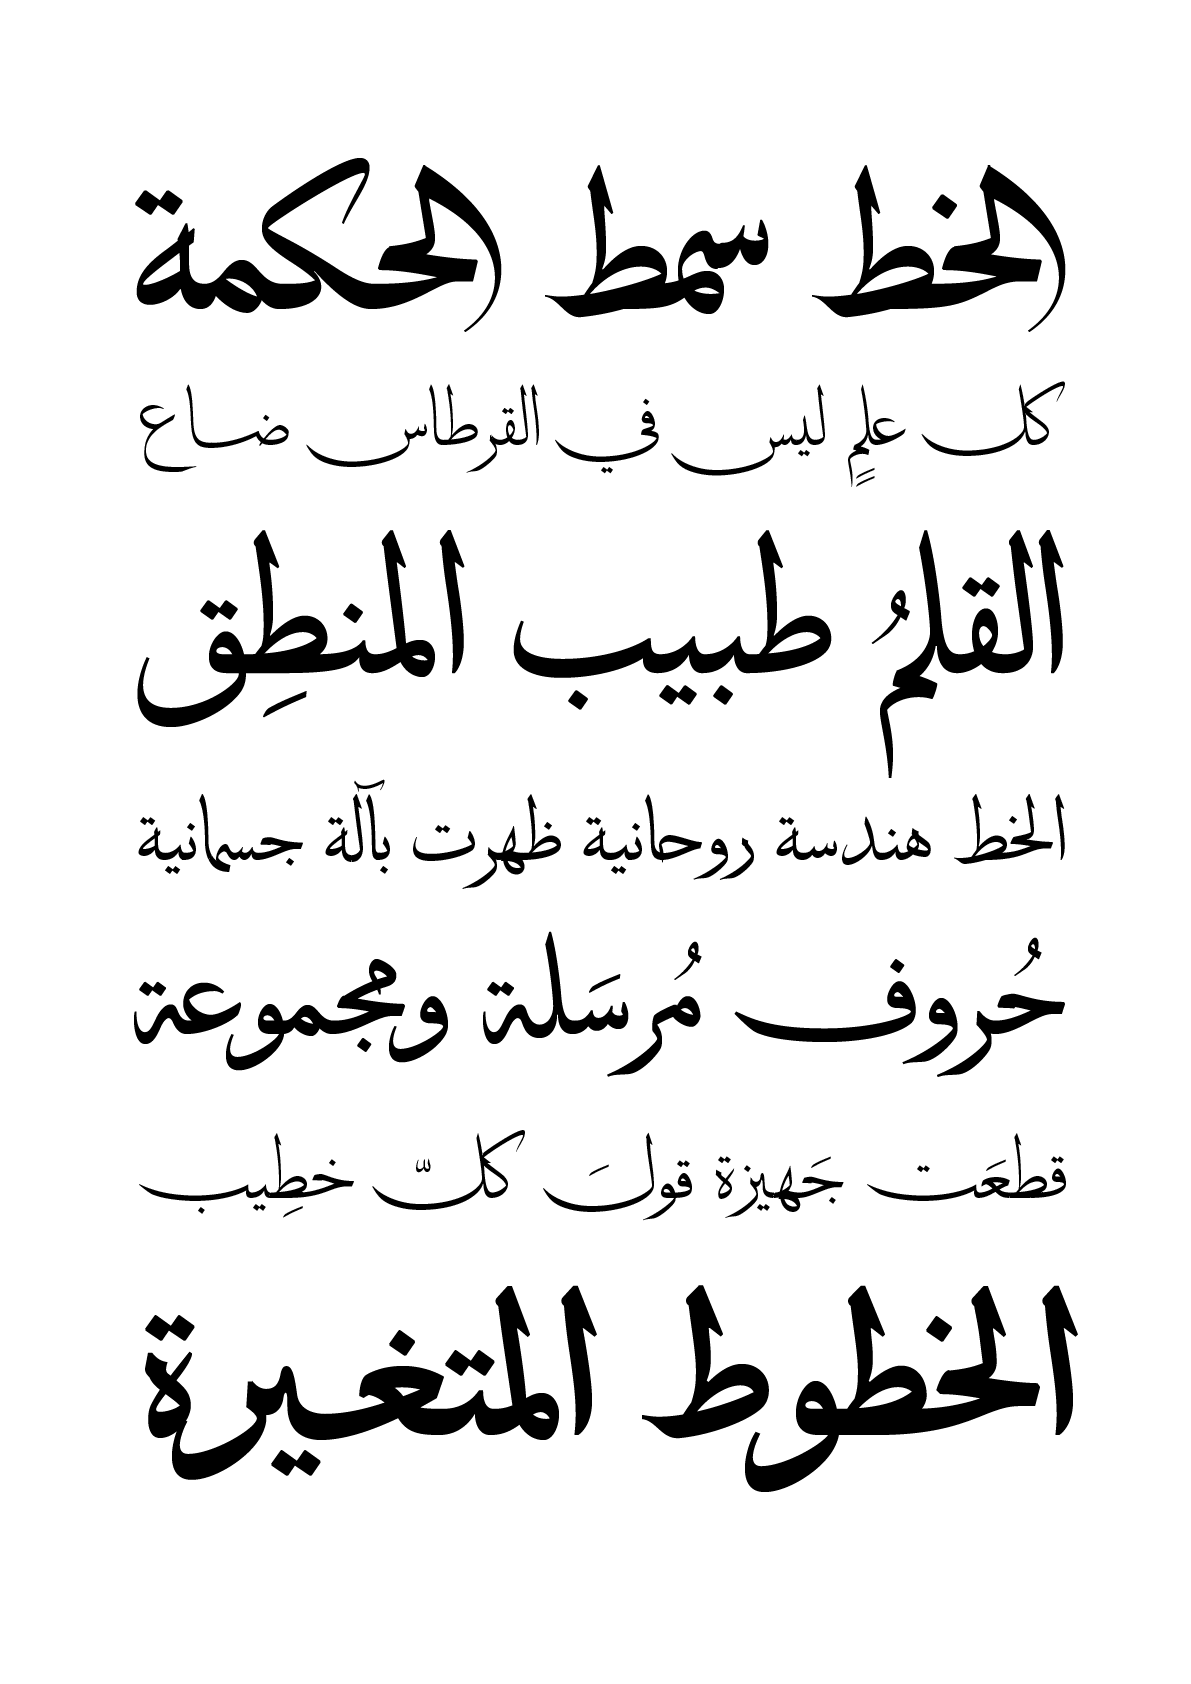 الخط سمط الحكمة
كل علمٍ ليس في القرطاس ضاع
القلمُ طبيب المنطِق
الخط هندسة روحانية ظهرت بآلة جسمانية
حُروف مُرسَلة ومجموعة
قطعَت جَهيزة قولَ كلّ خطِيب
الخطوط المتغيرة